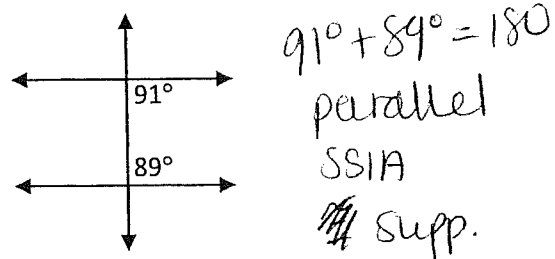 91°
89°
91° + 89° = 180
parallel
SSIA
supp.